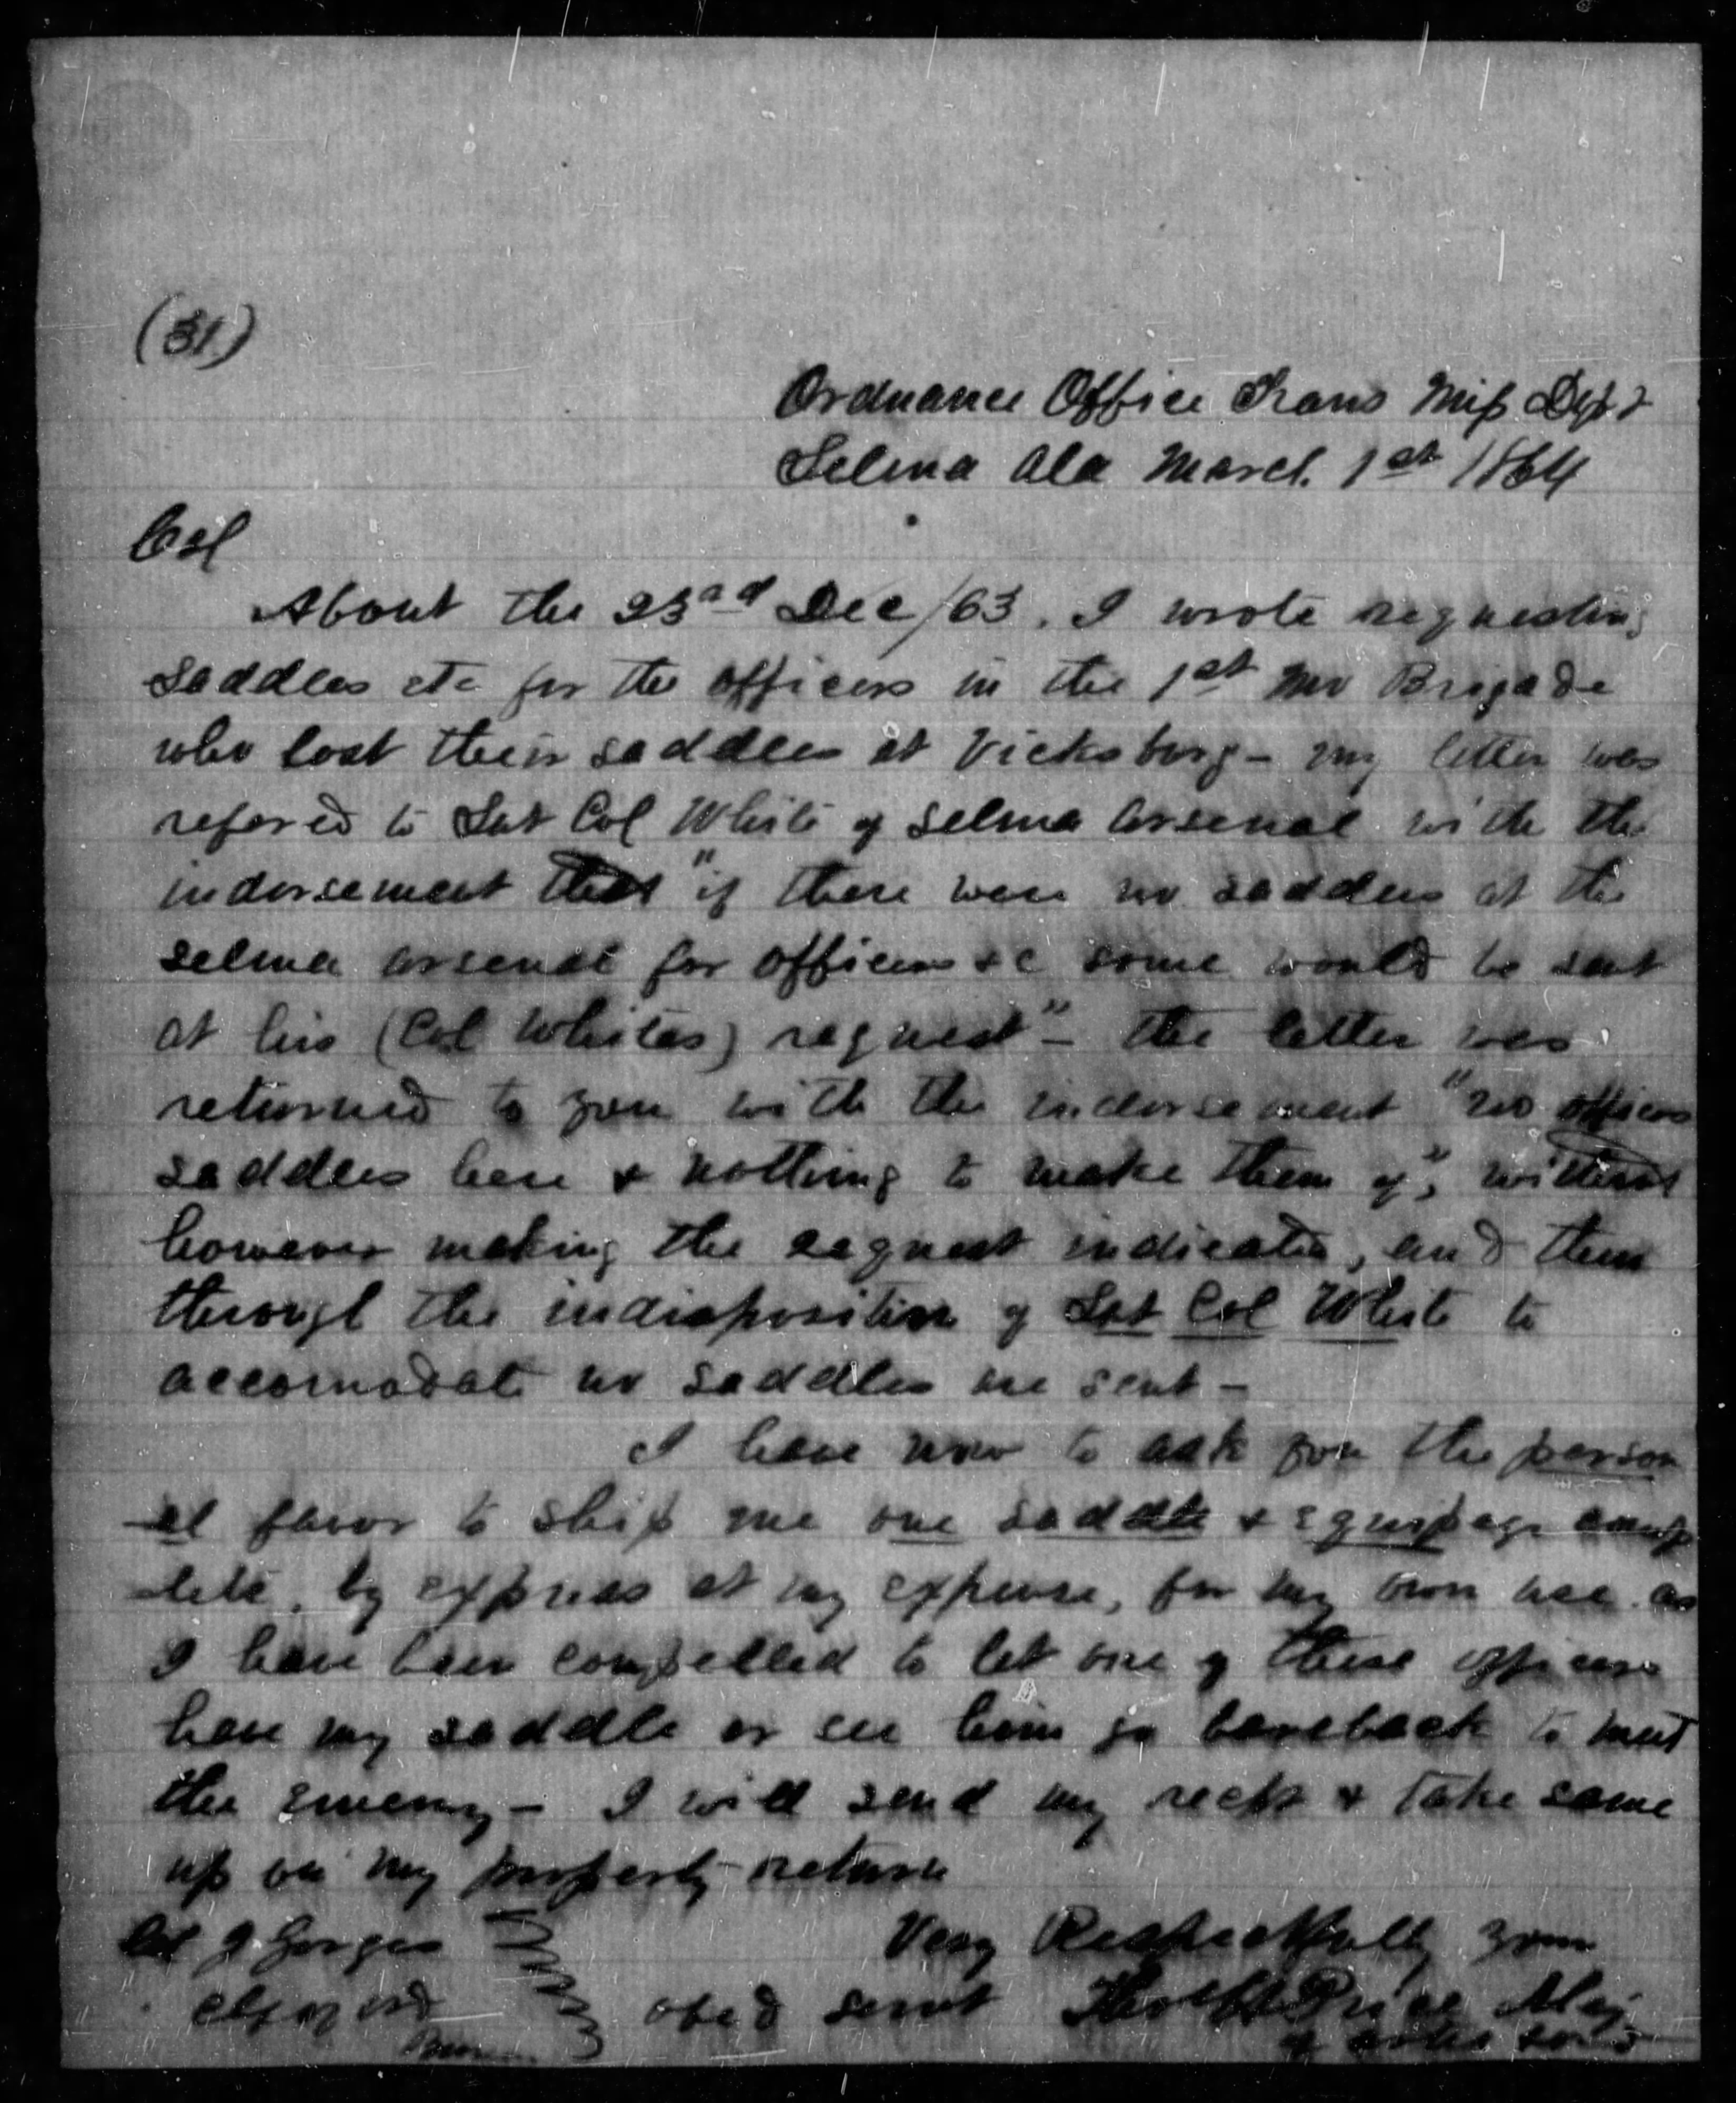 (31)
Ordnance Office Trans Miss. Dept
Selma Ala March 1st 1864
Col
About the 23rd Dec/63, I wrote requesting
saddles etc for the officers in the 1st Mo Brigade
who lost their saddles at Vicksburg - my letter was
refered to Lut Col White of Selma Arsenal with the
indorsement that "if there were no saddles at the
Selma arsenal for officers &c some would be sent
at his (Col Whites) request" - the letter was
returned to you with the indorsement "no officers
saddles here & nothing to make them of", without
however making the request indicated, and then
through the indisposition of Lut Col White to
accomodate no saddles are sent -
I have now to ask you the person
-al favor to ship me one saddle & equipage comp
-lete, by express at my expense, for my own use. as
I have been compelled to let one of these officers
have my saddle or see him go bareback to meet
the enemy - I will send my rect & take same
up on my property return
Col J Gorgas
Very Respectfully your
Chf of Ord
obed servt Thos H Price Maj